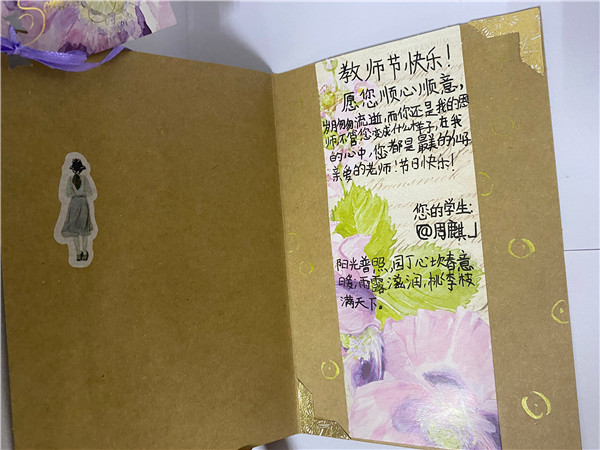 教师节快乐!
愿您顺心顺意,
岁月匆匆流逝,而你还是我的恩
师不管您变成什么样子,在我
的心中,您都是最美的仙子
亲爱的老师!节日快乐!
您的学生:
@周麒
阳光普照,园丁心坎春意
暖,雨露滋润,桃李枝
满天下。